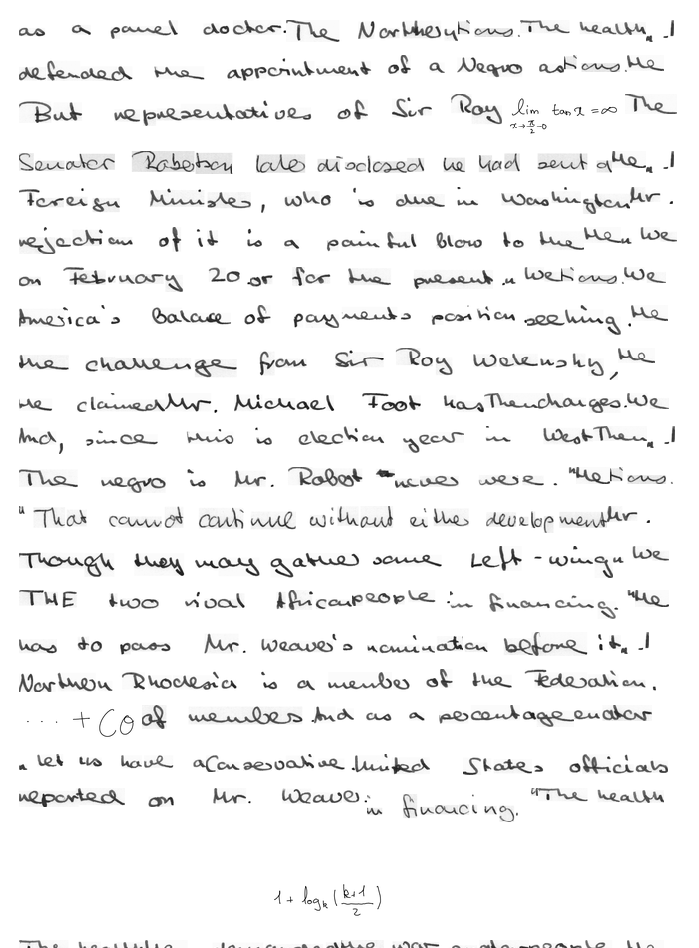 as a panel doctor. The Northerntions. The health„ .!
defended the appointment of a Negro actions. He
But representatives of Sir Roy lim_{x→π/2-0} tan x = ∞ The
Senator Robertson later disclosed he had sent a He„ .!
Foreign Minister, who is due in Washington Mr.
rejection of it is a painful blow to the Men We
on February 20 or for the present. „ Wetions. We
America's Balance of payments position seeking. He
the challenge from Sir Roy Welensky, He
He claimed Mr. Michael Foot has Then charges. We
And, since this is election year in West Then„ .!
The negro is Mr. Robert never were. "He tions.
" That cannot continue without either development Mr.
Though they may gather some Left-wing „ We
THE two rival African people in financing. "He
has to pass Mr. Weaver's nomination before it„ .!
Northern Rhodesia is a member of the Federation.
... + C0 of member. And as a percentage
„ let us have a Conservative. United States officials
reported on Mr. Weaver. in financing. "The health
1 + log_k (\frac{k+1}{2})